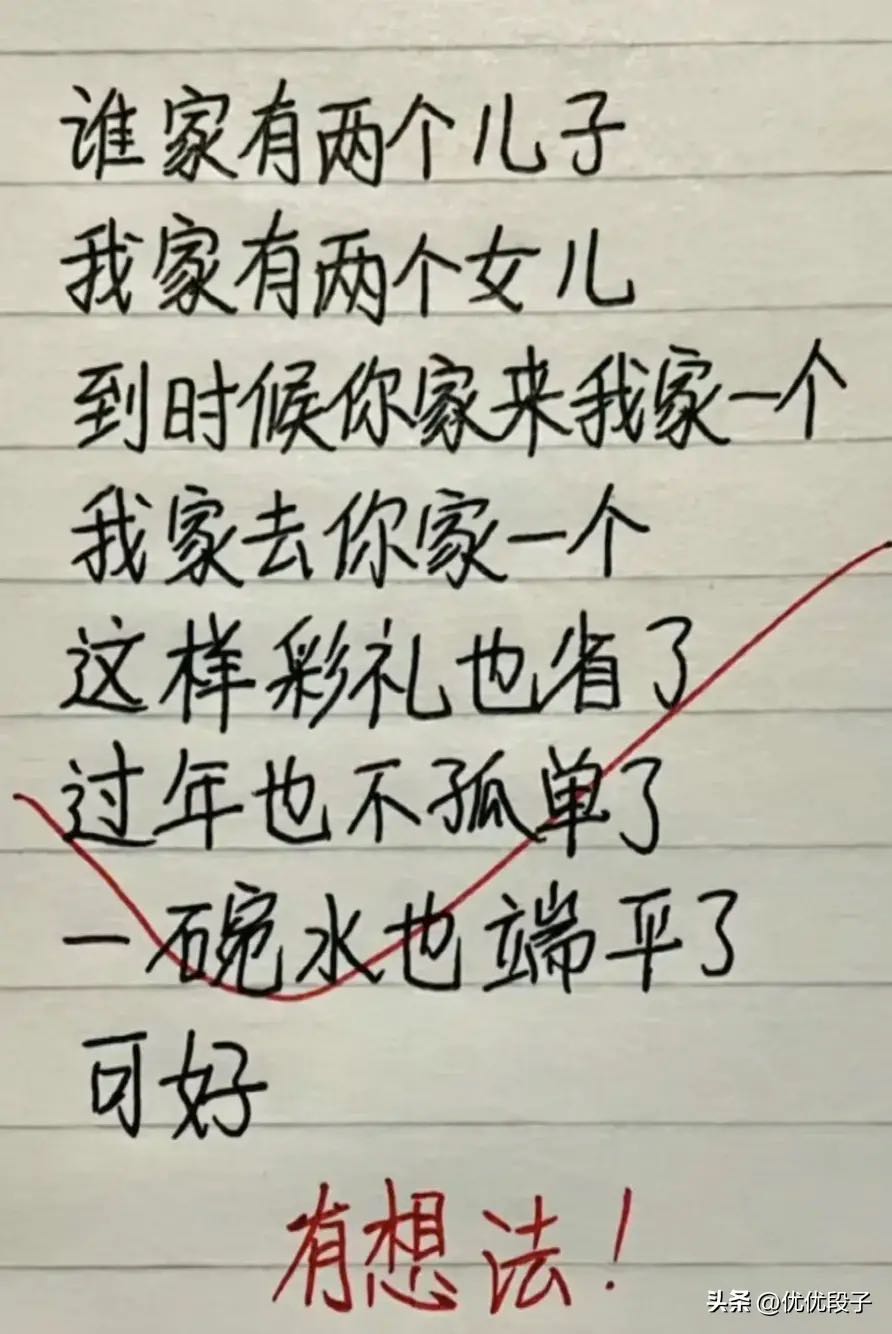 谁家有两个儿子
我家有两个女儿
到时候你家来我家一个
我家去你家一个
这样彩礼也省了
过年也不孤单了
一碗水也端平了
可好
有想法！
头条 @优优段子